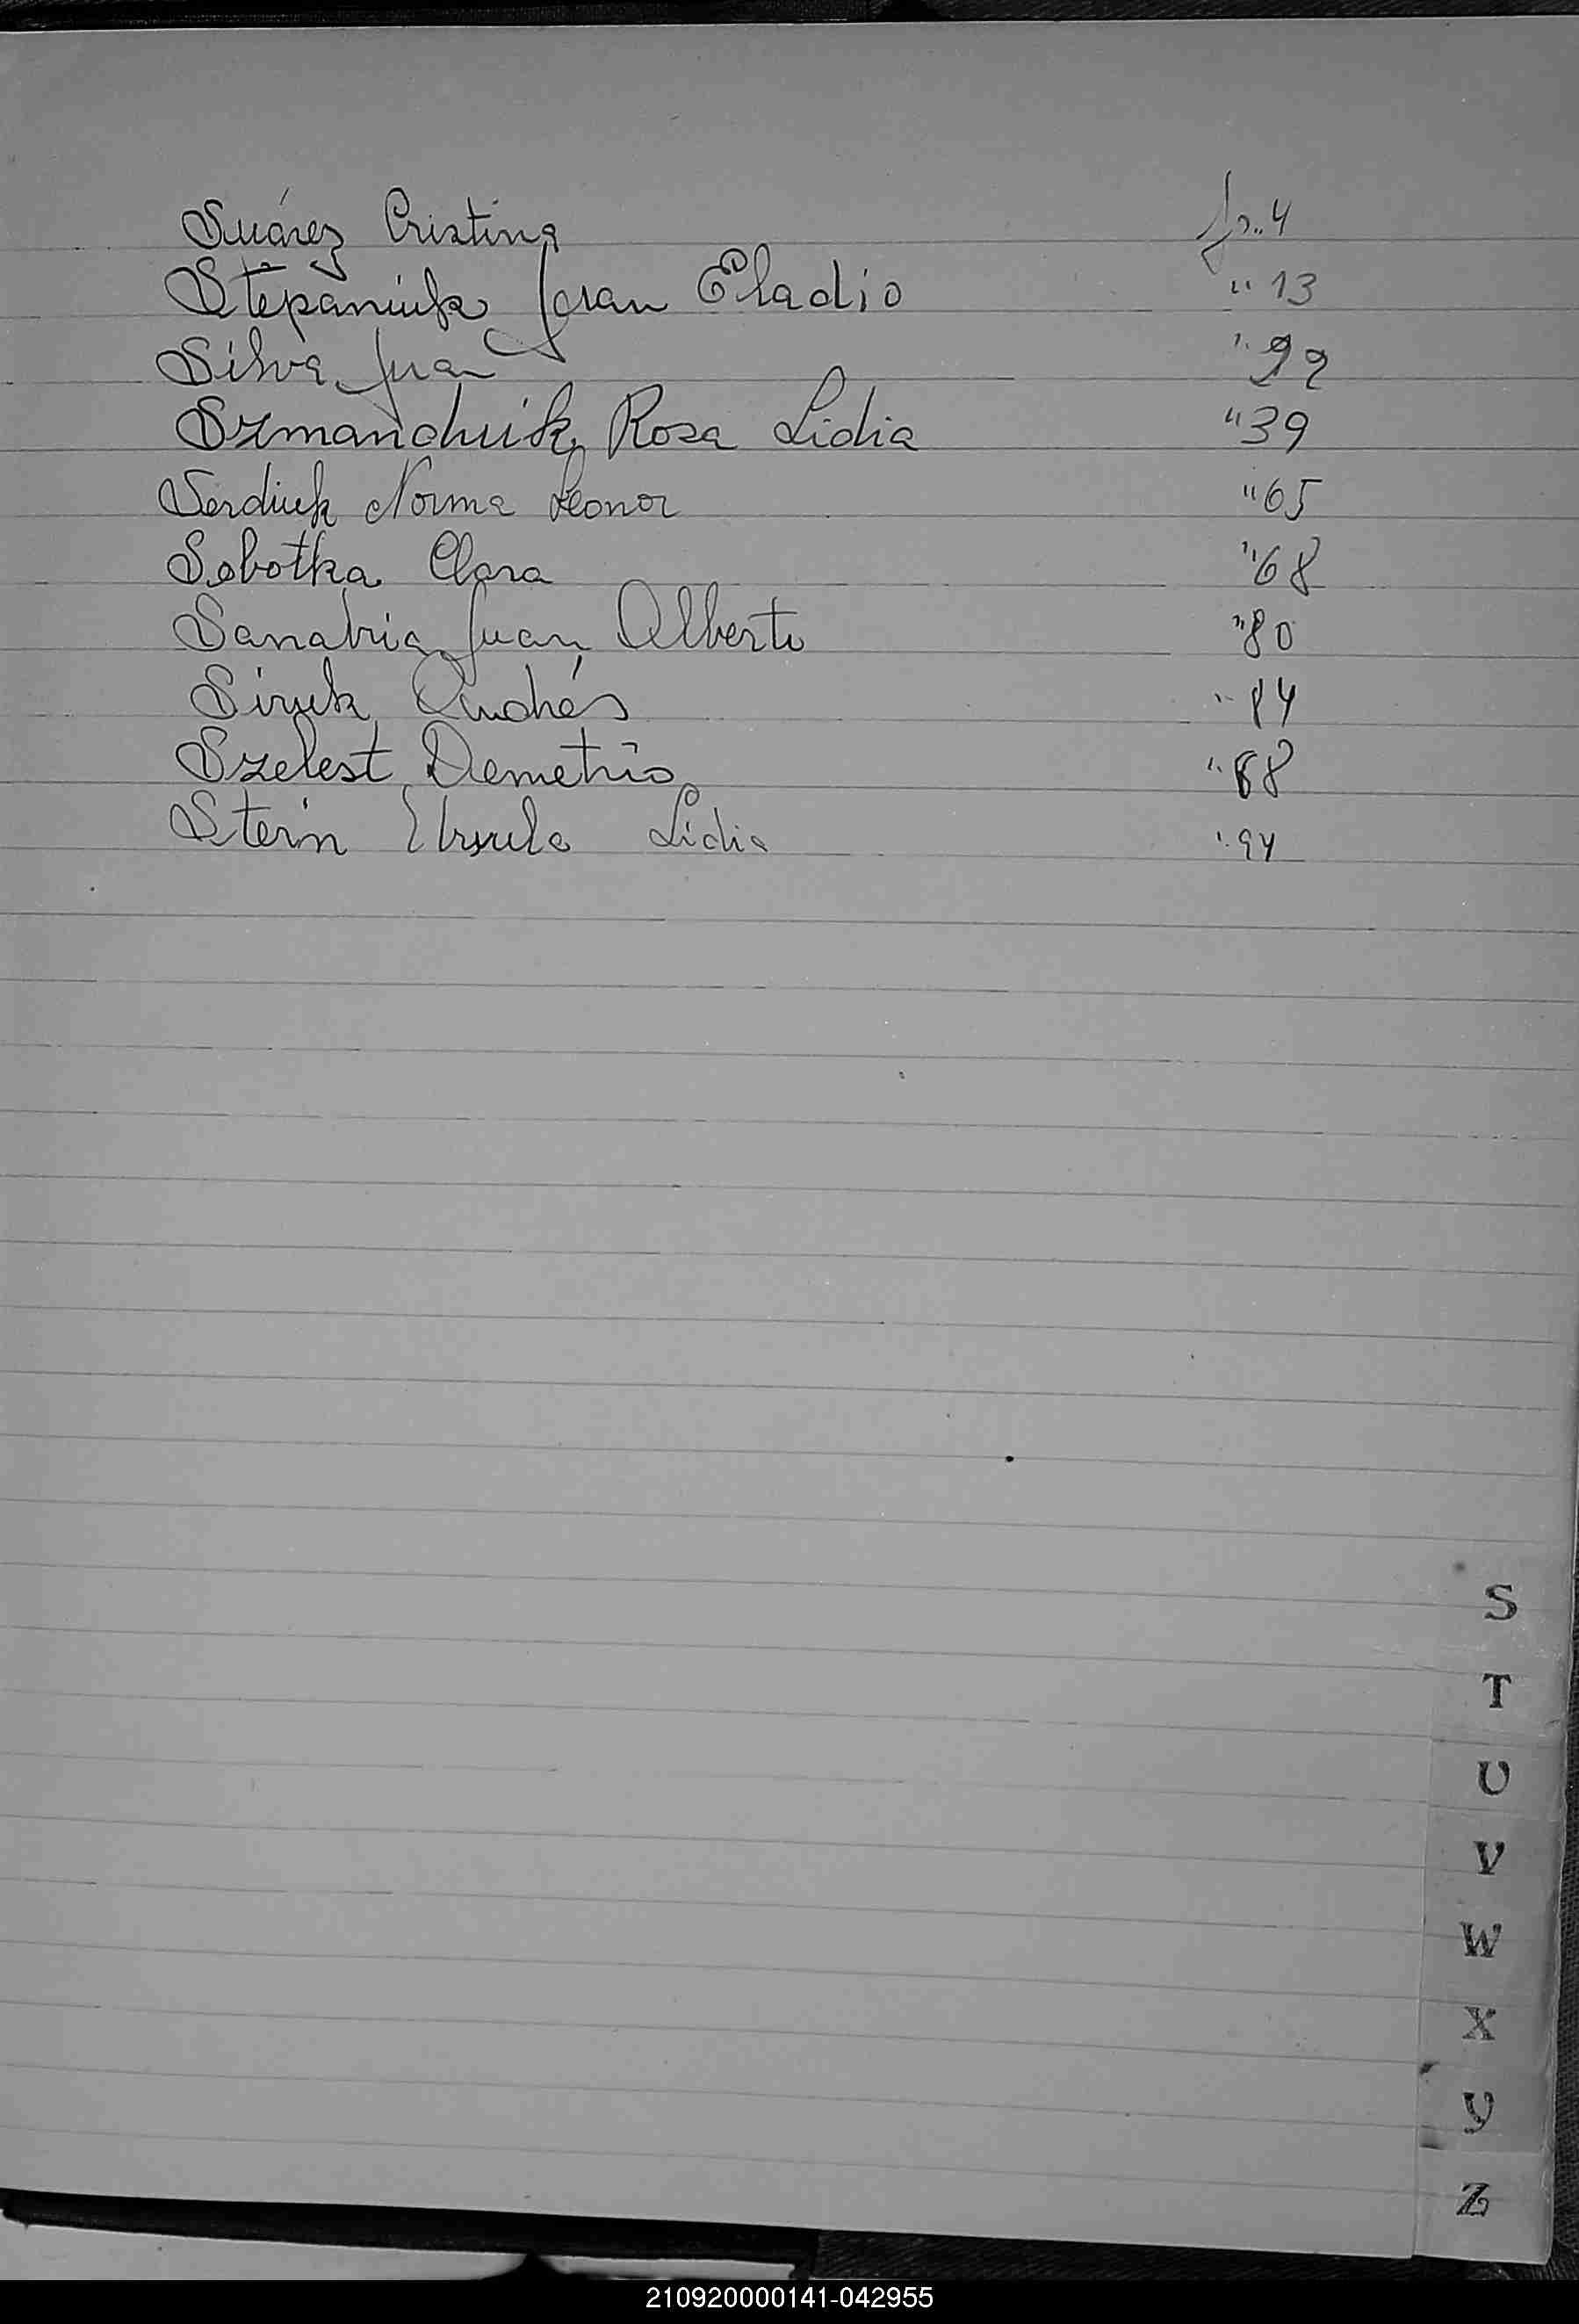 Suárez Cristina fs. 4
Stepaniuk Juan Eladio " 13
Silva Juan " 22
Szmanchuik, Rosa Lidia " 39
Serdiuk Norma Leonor " 65
Sobotka Clara " 68
Sanabria Juan Alberto " 80
Siryk Andrés " 84
Szelest Demetrio " 88
Stein Ursula Lidia " 94
S
T
U
V
W
X
Y
Z
210920000141-042955